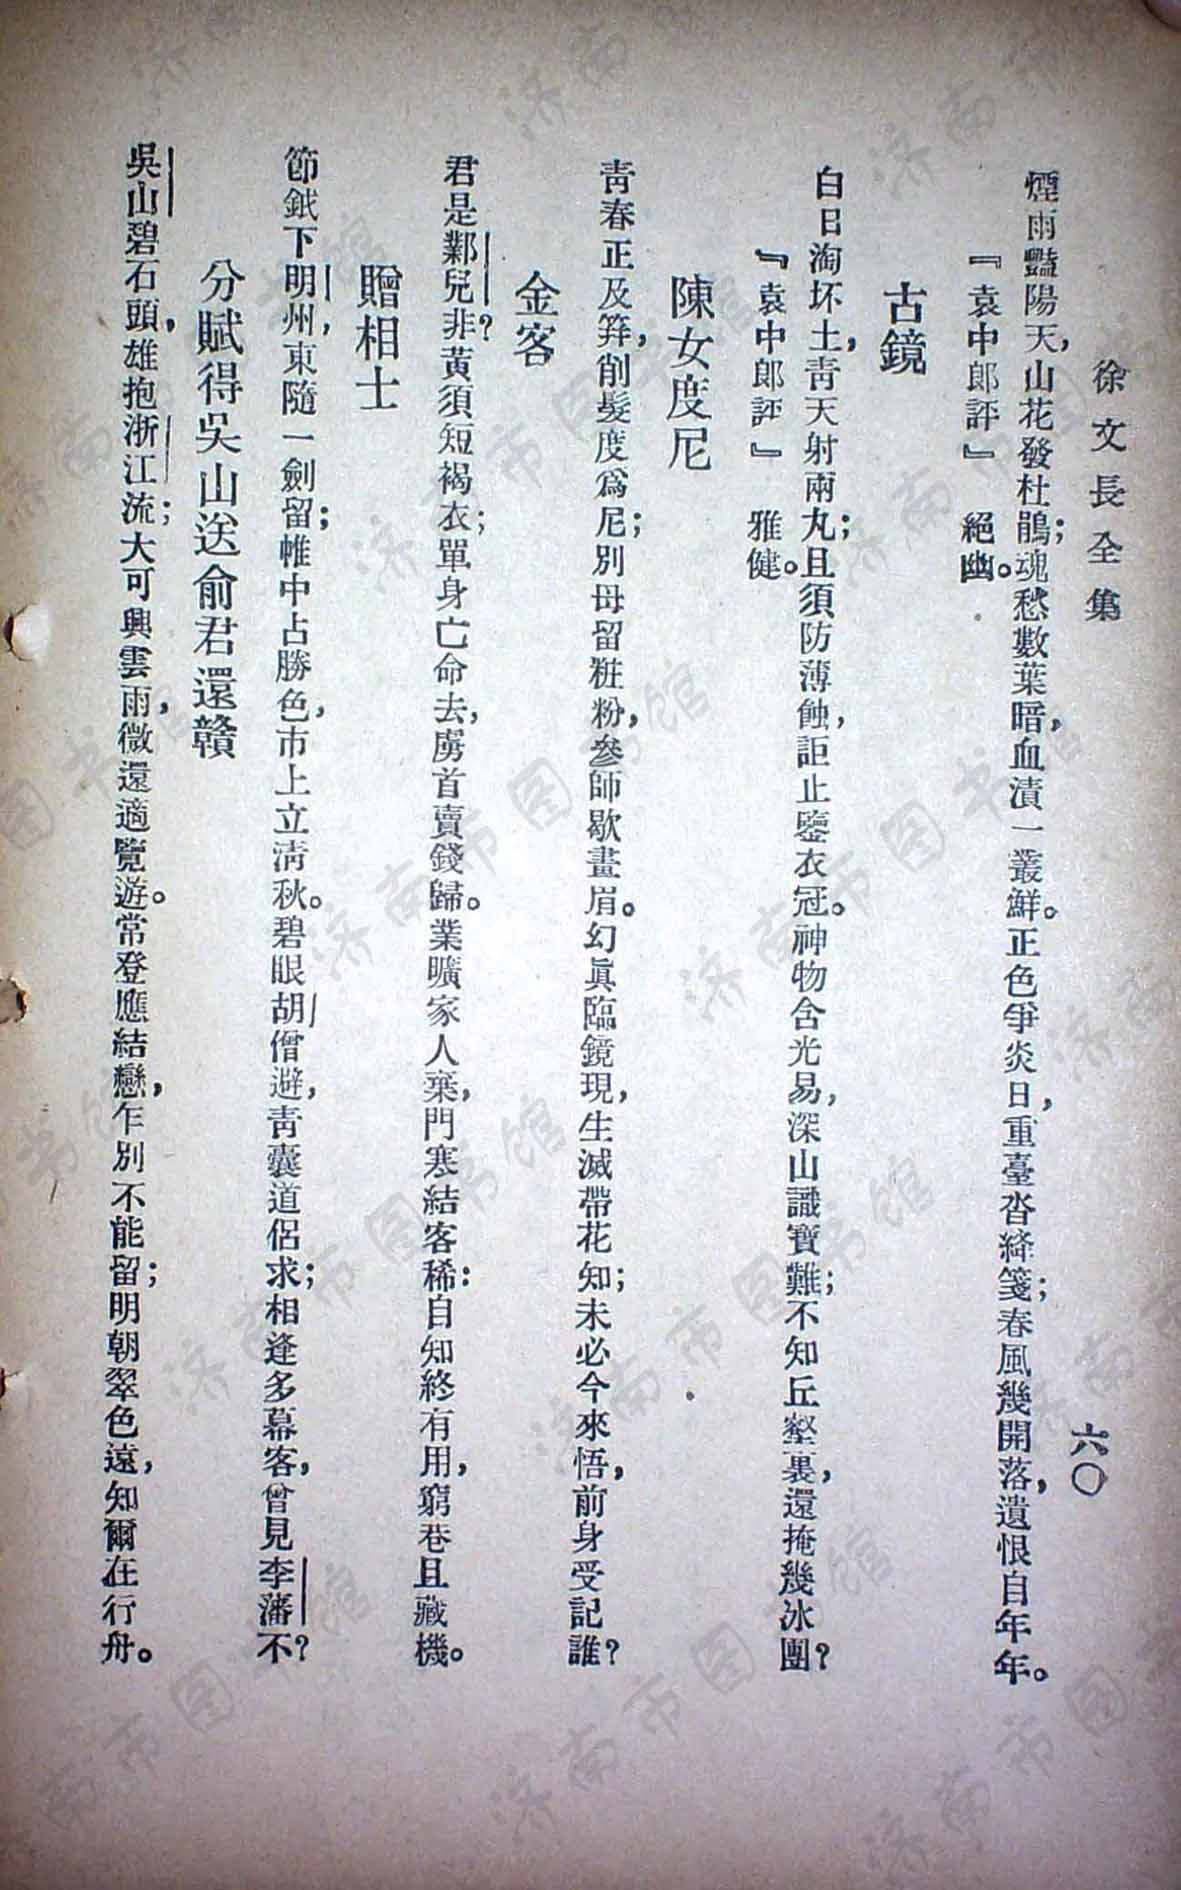 徐文長全集
六〇
煙雨豔陽天，山花發杜鵑；魂愁數葉暗，血漬一叢鮮。正色爭炎日，重臺沓絳箋；春風幾開落，遺恨自年年。
『袁中郎評』 絕幽。
古鏡
白日淘坏土，青天射兩丸；且須防薄蝕，詎止鑒衣冠。神物含光易，深山識寶難；不知丘壑裏，還掩幾冰團？
『袁中郎評』 雅健。
陳女度尼
青春正及筓，削髮度爲尼；別母留粧粉，參師歇畫眉。幻眞臨鏡現，生滅帶花知；未必今來悟，前身受記誰？
金客
君是鄴兒非？黃須短褐衣；單身亡命去，虜首賣錢歸。業曠家人棄，門寒結客稀：自知終有用，窮巷且藏機。
贈相士
節鉞下明州，東隨一劍留；帷中占勝色，市上立清秋。碧眼胡僧避，青囊道侶求；相逢多幕客，曾見李藩不？
分賦得吳山送俞君還贛
吳山碧石頭，雄抱浙江流；大可興雲雨，微還適覽遊。常登應結戀，乍別不能留；明朝翠色遠，知爾在行舟。
济南市图书馆